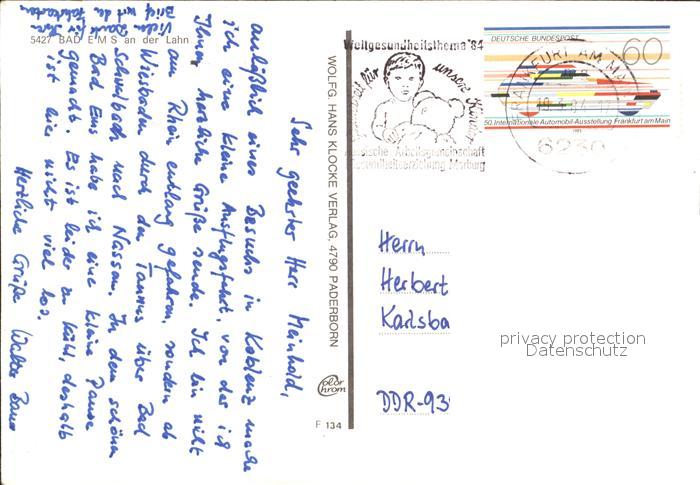 Vielen Dank für Ihren
Brief mit den Fahrkarten
5427 BAD EMS an der Lahn
Sehr geehrter Herr Mainhold,
anläßlich eines Besuchs in Koblenz mache
ich eine kleine Ausflugsfahrt, von der ich
Ihnen herzliche Grüße sende. Ich bin nicht
am Rhein entlang gefahren, sondern ab
Wiesbaden durch den Taunus über Bad
Schwalbach und Nassau. In dem schönen
Bad Ems habe ich eine kleine Pause
gemacht. Es ist leider zu kühl, deshalb
ist hier nicht viel los.
Herzliche Grüße Walter
WOLFG. HANS KLOCKE VERLAG, 4790 PADERBORN
Color
chrom
F 134
Weltgesundheitsthema '84
für unsere Kinder
Hessische Arbeitsgemeinschaft
Gesundheitserziehung Marburg
DEUTSCHE BUNDESPOST
60
50. Internationale Automobil-Ausstellung Frankfurt am Main
1983
FRANKFURT AM MAIN
6230
Herrn
Herbert
Karlsba
DDR-93
privacy protection
Datenschutz